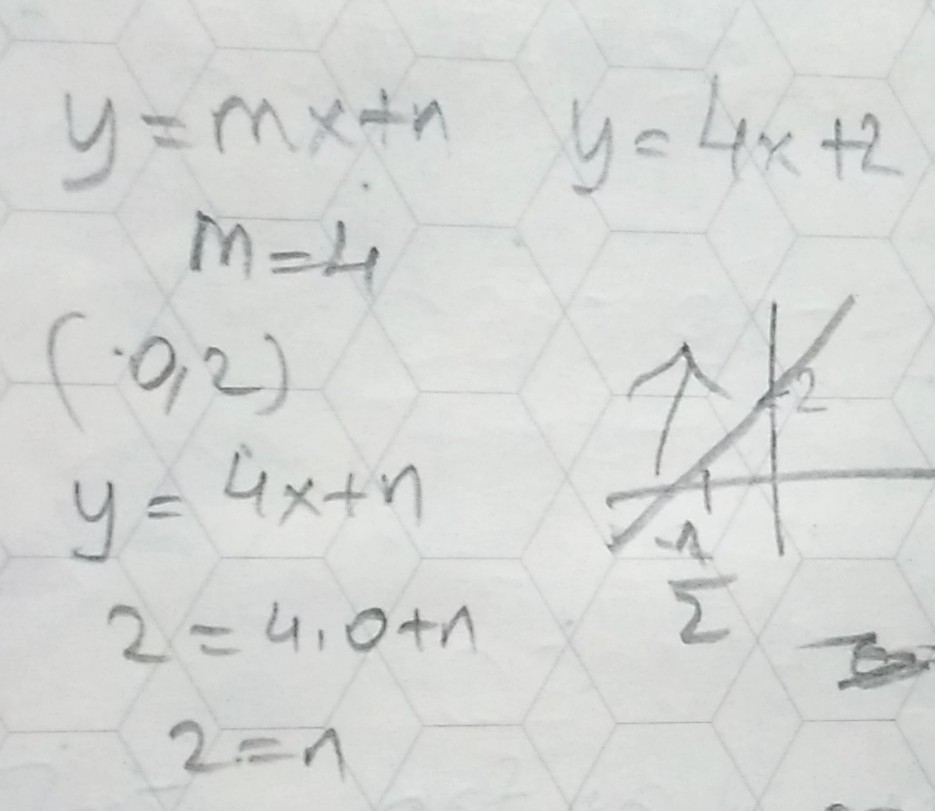 y = mx+n
m = 4
(0,2)
y = 4x+n
2 = 4.0+n
2 = n
y = 4x+2
2
-1
2